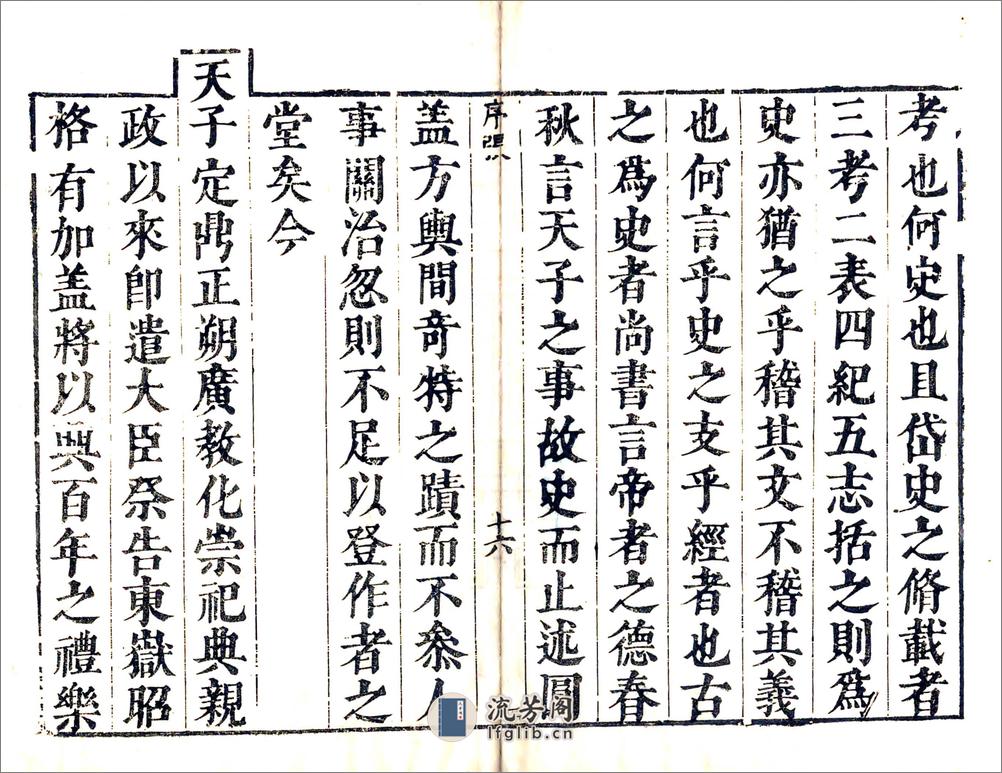 考也何史也且岱史之脩載者
三考二表四紀五志括之則爲
史亦猶之乎稽其文不稽其義
也何言乎史之支乎經者也古
之爲史者尚書言帝者之德春
秋言天子之事故史而止述圓
序
十六
盖方輿間奇特之蹟而不叅人
事關治忽則不足以登作者之
堂矣今
天子定鼎正朔廣教化崇祀典親
政以來卽遣大臣祭告東嶽昭
格有加盖將以興百年之禮樂
流芳阁
lfglib.cn